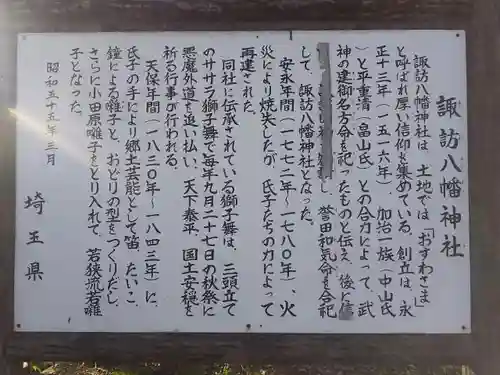 諏訪八幡神社
諏訪八幡神社は、土地では「おすわさま」
と呼ばれ厚い信仰を集めている。創立は、永
正十三年（一五一六年）、加治一族（中山氏
）と平重清（畠山氏）との合力によって、武
神の建御名方命を祀ったものと伝え、後に
誉田和気命を合祀
して、諏訪八幡神社となった。
安永年間（一七七二年～一七八〇年）、火
災により焼失したが、氏子たちの力によって
再建された。
同社に伝承されている獅子舞は、三頭立て
のササラ獅子舞で毎年九月二十七日の秋祭に
悪魔外道を追い払い、天下泰平、国土安穏を
祈る行事が行われる。
天保年間（一八三〇年～一八四三年）に、
氏子の手により郷土芸能として笛、たいこ、
鐘による囃子と、おどりの型をつくりだし、
さらに小田原囃子をとり入れて、若狭流岩囃
子となった。
昭和五十五年三月
埼玉県